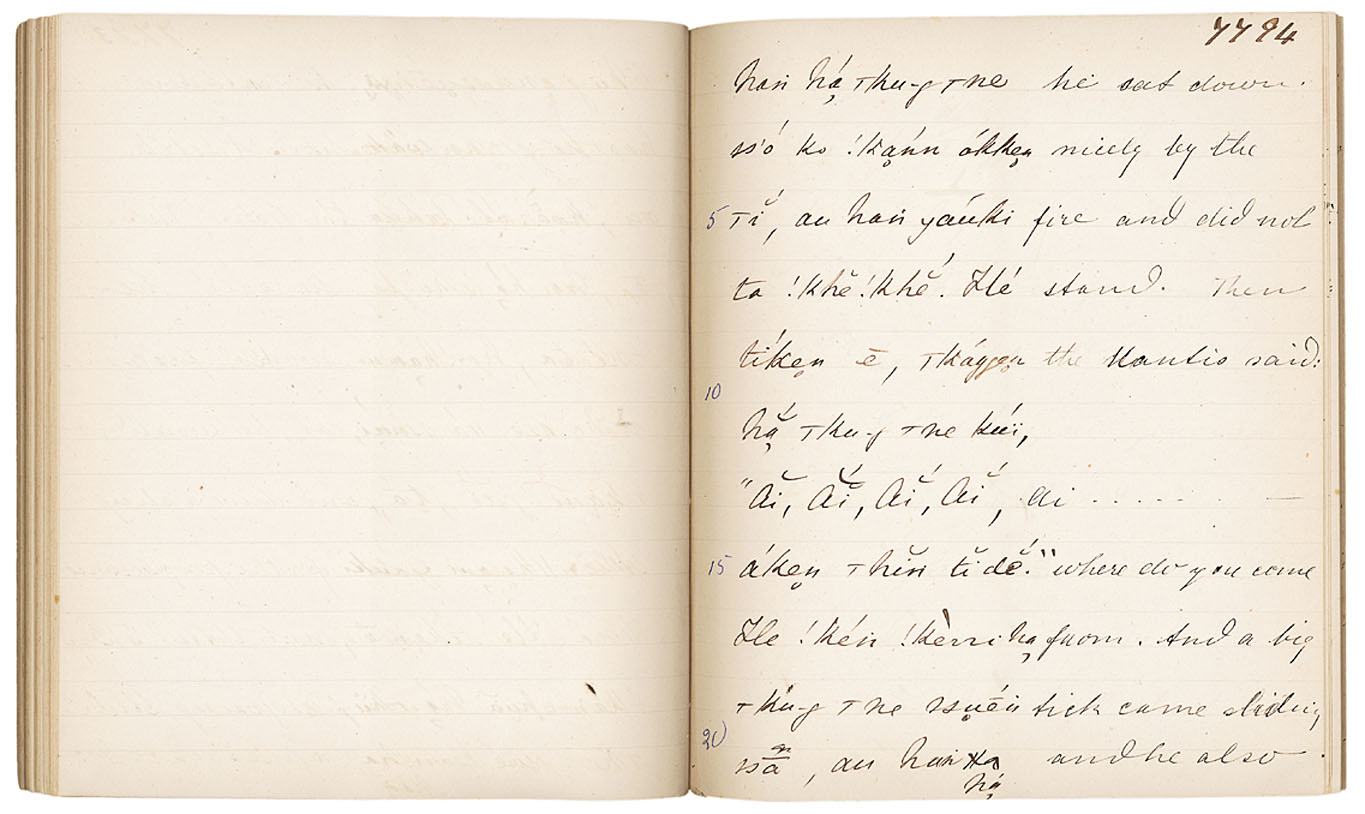 7794
haṅ há̤ ⊤ku-g ⊤ne he sat down.
ss'ó ko !ka̤ṅn ókke̤n nicely by the
5 ⊤ĭ́, au haṅ yaúki fire and did not
ta !khĕ!khĕ́. Hé stand. Then
tíke̤n ē, ⊤kágge̤n the Mantis said:
10
hā̤̆́ ⊤ku-g ⊤ne kúï,
"Ăĭ, Ăĭ́, Ăĭ́, Ăĭ́, ai . . . . . . —
15 áke̤n ⊤hĭṅ tĭ dĕ́." where do you come
He !kéṅ !kèrri ha̤ from. And a big
⊤kú-g ⊤ne ssṳḗṅ tick came sliding
20
ssā̤, au haṅ há̤ and he also